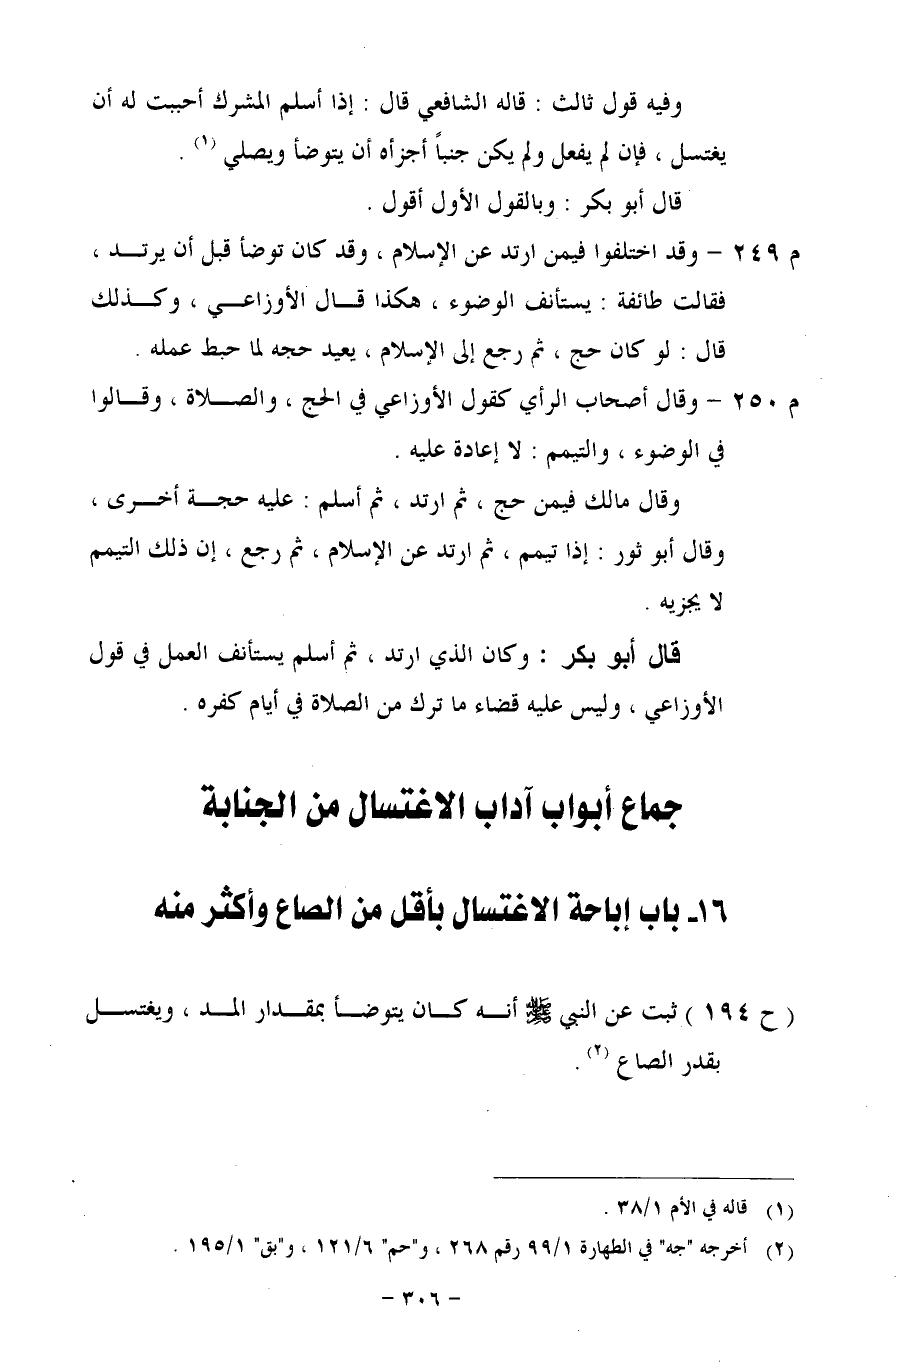 وفيه قول ثالث : قاله الشافعي قال : إذا أسلم المشرك أحببت له أن
يغتسل ، فإن لم يفعل ولم يكن جنباً أجزأه أن يتوضأ ويصلي (١) .
قال أبو بكر : وبالقول الأول أقول .
م ٢٤٩ – وقد اختلفوا فيمن ارتد عن الإسلام ، وقد كان توضأ قبل أن يرتـــد ،
فقالت طائفة : يستأنف الوضوء ، هكذا قـــال الأوزاعـــي ، وكـــذلك
قال : لو كان حج ، ثم رجع إلى الإسلام ، يعيد حجه لما حبط عمله .
م ٢٥٠ – وقال أصحاب الرأي كقول الأوزاعي في الحج ، والصـــلاة ، وقـــالوا
في الوضوء ، والتيمم : لا إعادة عليه .
وقال مالك فيمن حج ، ثم ارتد ، ثم أسلم : عليه حجـــة أخـــرى ،
وقال أبو ثور : إذا تيمم ، ثم ارتد عن الإسلام ، ثم رجع ، إن ذلك التيمم
لا يجزيه .
قال أبو بكر : وكان الذي ارتد ، ثم أسلم يستأنف العمل في قول
الأوزاعي ، وليس عليه قضاء ما ترك من الصلاة في أيام كفره .
جماع أبواب آداب الاغتسال من الجنابة
١٦ـ باب إباحة الاغتسال بأقل من الصاع وأكثر منه
( ح ١٩٤ ) ثبت عن النبي ﷺ أنـــه كـــان يتوضـــأ بمقـــدار المـــد ، ويغتســـل
بقدر الصاع (٢) .
(١) قاله في الأم ٣٨/١ .
(٢) أخرجه "جه" في الطهارة ٩٩/١ رقم ٢٦٨ ، و"حم" ١٢١/٦ ، و"بق" ١٩٥/١ .
– ٣٠٦ –